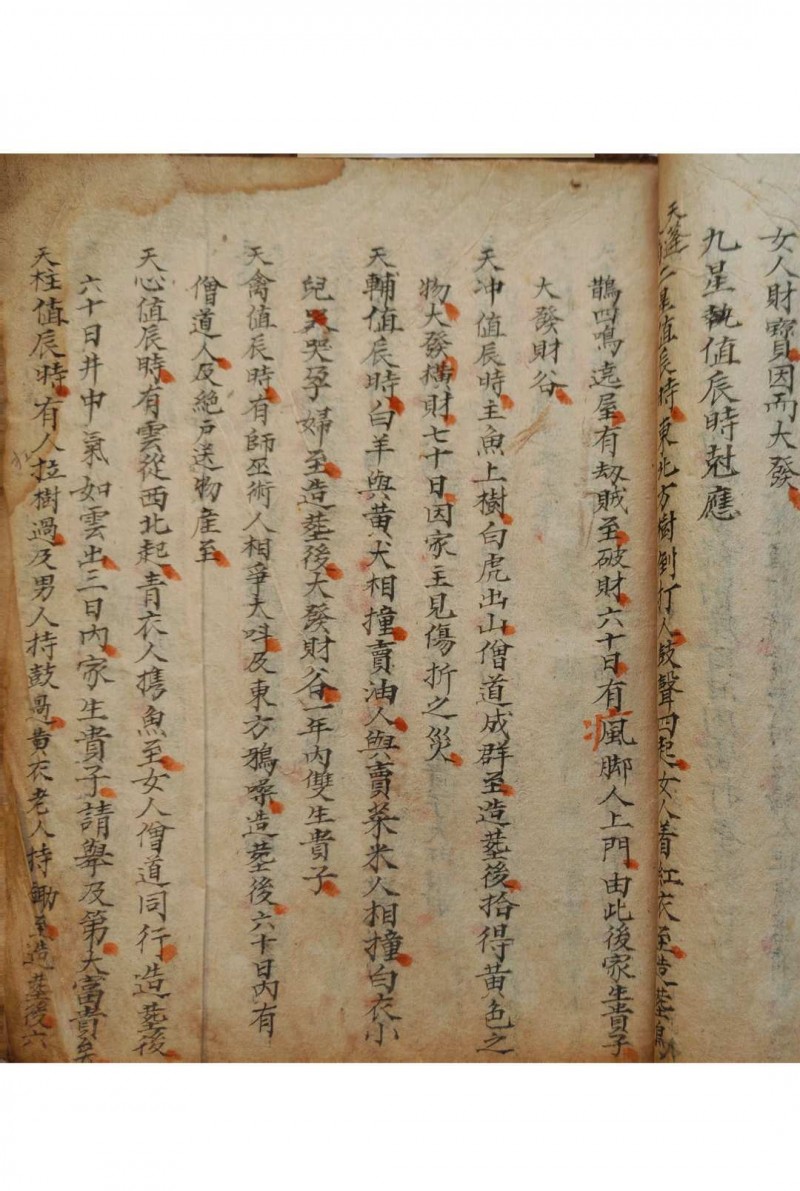 女人財寶因而大發
九星執值辰時尅應
天蓬星值辰時東北方樹倒打人鼓聲四起女人着紅衣至造塟
鵲四鳴遶屋有刼賊至破財六十日有瘋脚人上門由此後家生貴子
大發財谷
天冲值辰時主魚上樹白虎出山僧道成群至造塟後拾得黄色之
物大發横財七十日因家主見傷折之災
天輔值辰時白羊與黄犬相撞賣油人與賣菜米人相撞白衣小
兒哭哭孕婦至造塟後大發財谷一年內雙生貴子
天禽值辰時有師巫術人相爭大呌及東方鴉噪造塟後六十日內有
僧道人及絕戶送物産至
天心值辰時有雲從西北起青衣人携魚至女人僧道同行造塟後
六十日井中氣如雲出三日內家生貴子請舉及第大富貴矣
天柱值辰時有人拉樹過及男人持鼓過黄衣老人持鋤至造塟後六